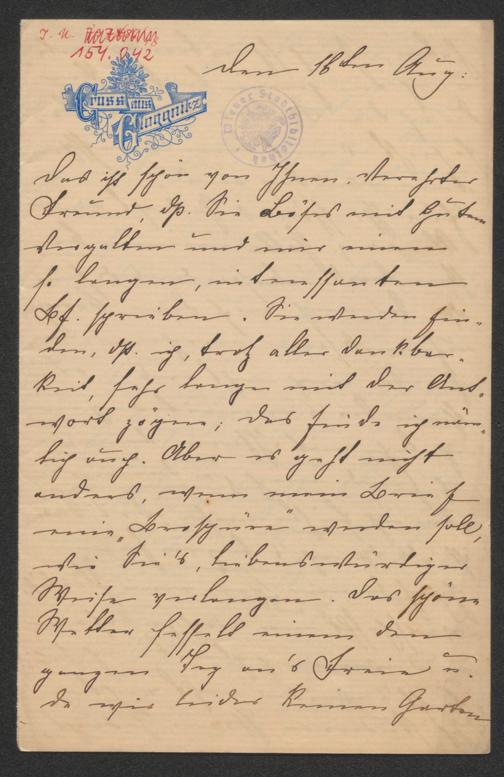 I. N.
154.842
Gruss aus
Gloggnitz
Wiener Stadtbibliothek
Den 18ten Aug:
Das ist schön von Ihnen, verehrter
Freund, dß. Sie Böses mit Gutem
vergalten und mir einen
so langen, interessanten
Bf. schrieben. Sie werden fin-
den, dß. ich, trotz aller Dankbar-
keit, sehr lange mit der Ant-
wort zögere; das finde ich näm-
lich auch. Aber es geht nicht
anders, wenn mein Brief
eine „Broschüre" werden soll,
wie Sie's, liebenswürdiger
Weise verlangen. Das schöne
Wetter fesselt einem den
ganzen Tag an's Freie u.
da wir leider keinen Garten